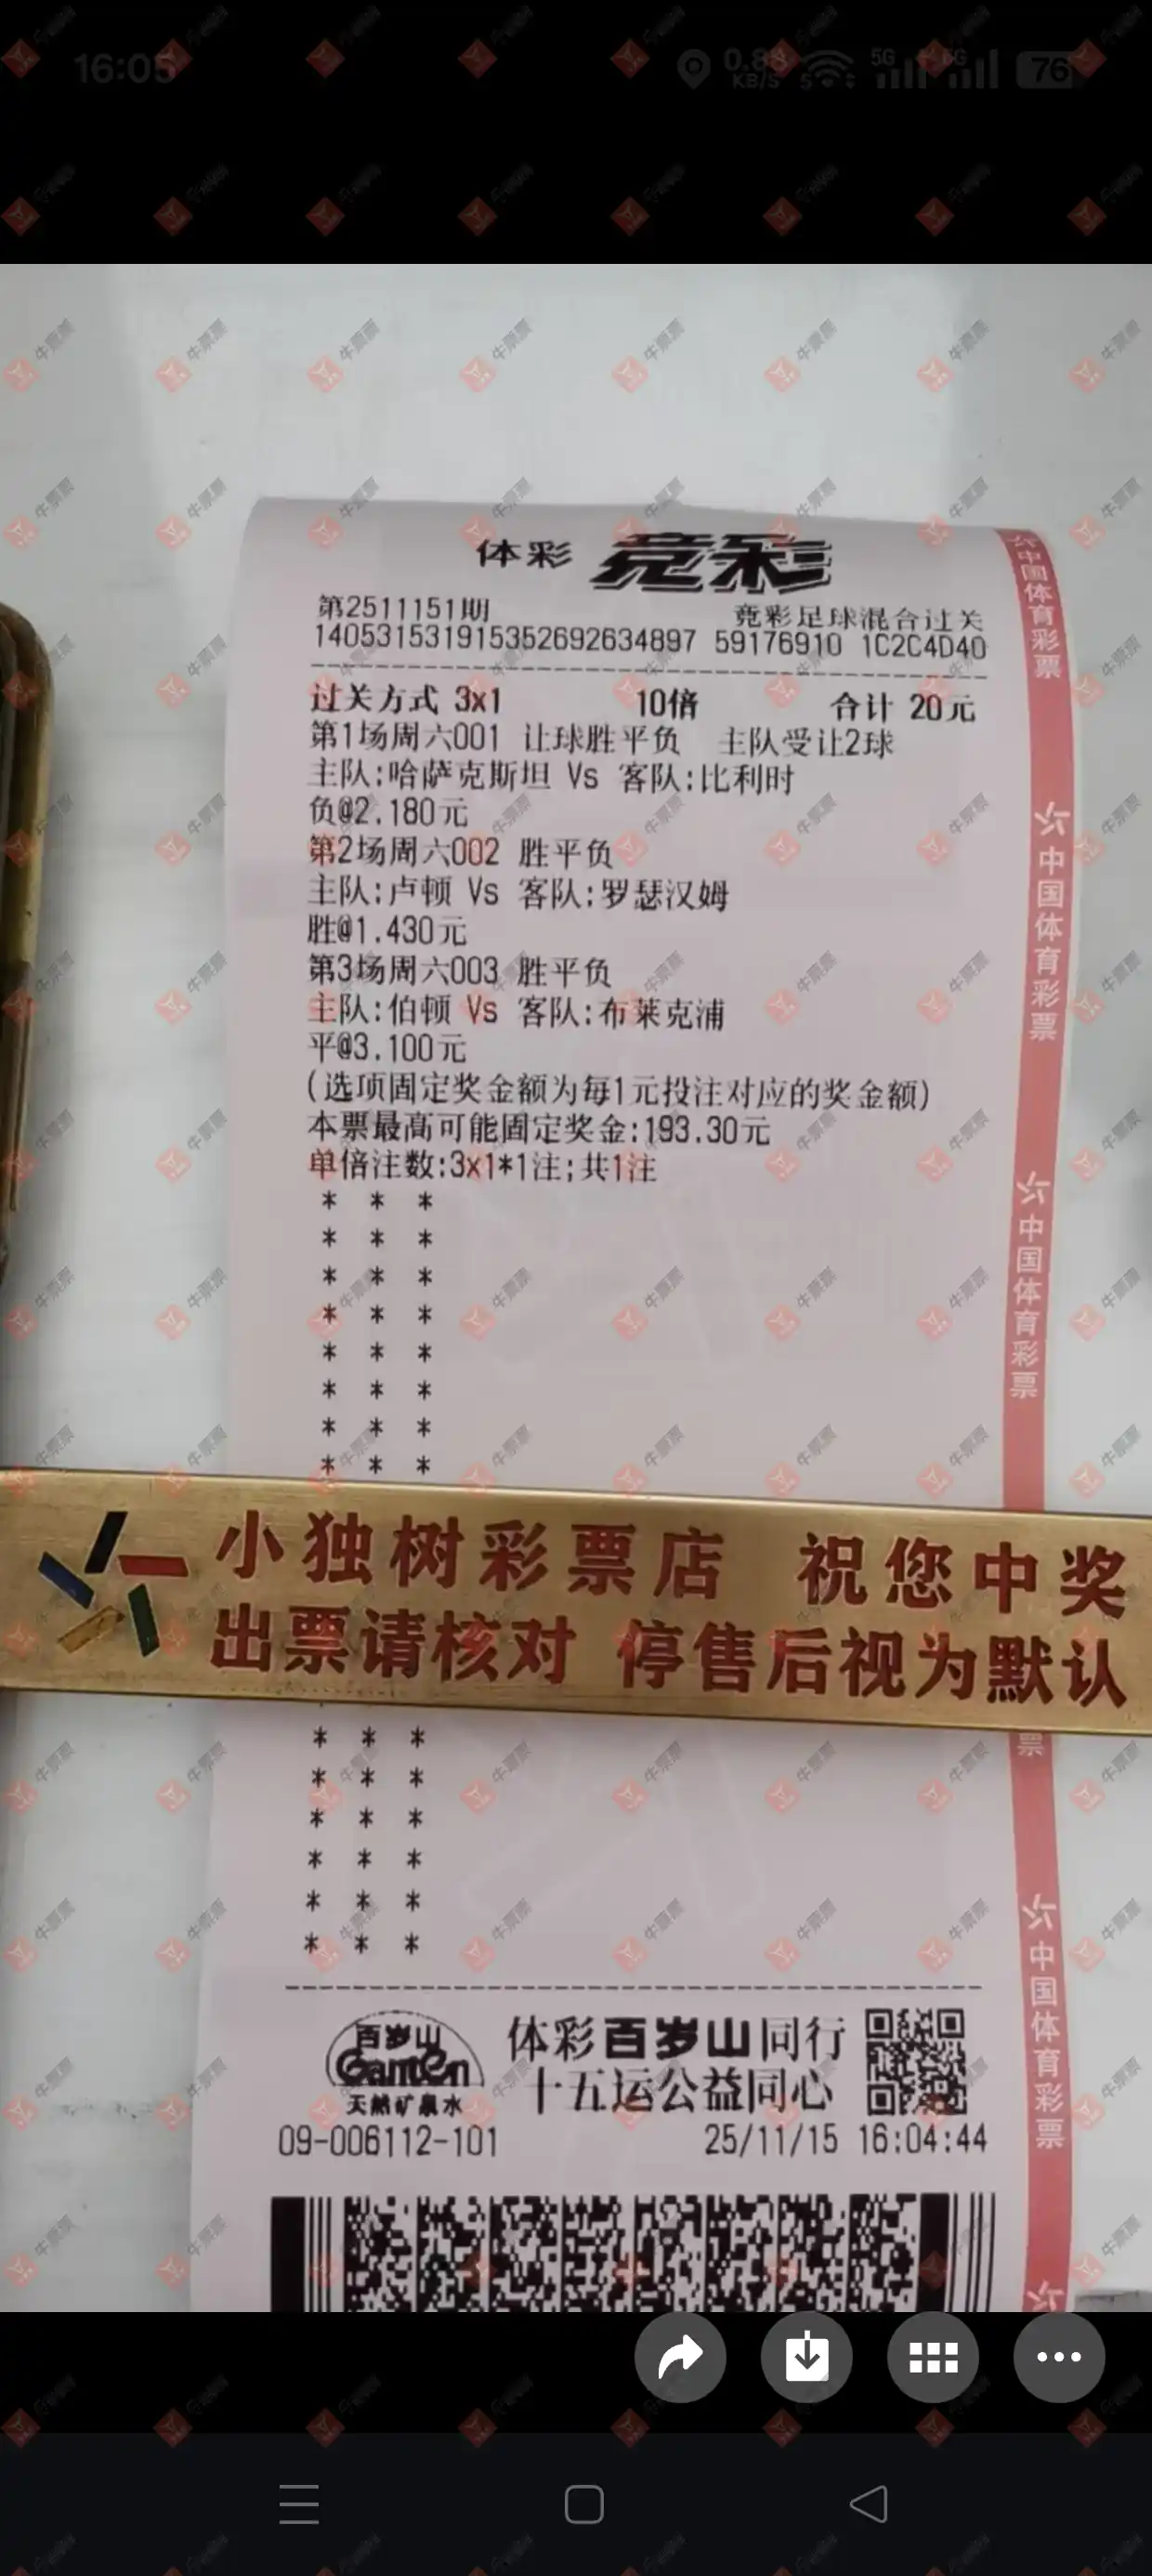 16:05
0.88 KB/S 5G 5G 76
体彩 竞彩
第2511151期 竞彩足球混合过关
140531531915352692634897 59176910 1C2C4D40
过关方式 3x1 10倍 合计 20元
第1场周六001 让球胜平负 主队受让2球
主队:哈萨克斯坦 Vs 客队:比利时
负@2.180元
第2场周六002 胜平负
主队:卢顿 Vs 客队:罗瑟汉姆
胜@1.430元
第3场周六003 胜平负
主队:伯顿 Vs 客队:布莱克浦
平@3.100元
(选项固定奖金额为每1元投注对应的奖金额)
本票最高可能固定奖金:193.30元
单倍注数:3x1*1注;共1注
* * *
* * *
* * *
* * *
* * *
* * *
* * *
* * *
小独树彩票店 祝您中奖
出票请核对 停售后视为默认
* * *
* * *
* * *
* * *
* * *
* * *
百岁山
Ganten
天然矿泉水
体彩百岁山同行
十五运公益同心
09-006112-101 25/11/15 16:04:44
中国体育彩票
中国体育彩票
中国体育彩票
票
中国体育彩票
牛票票